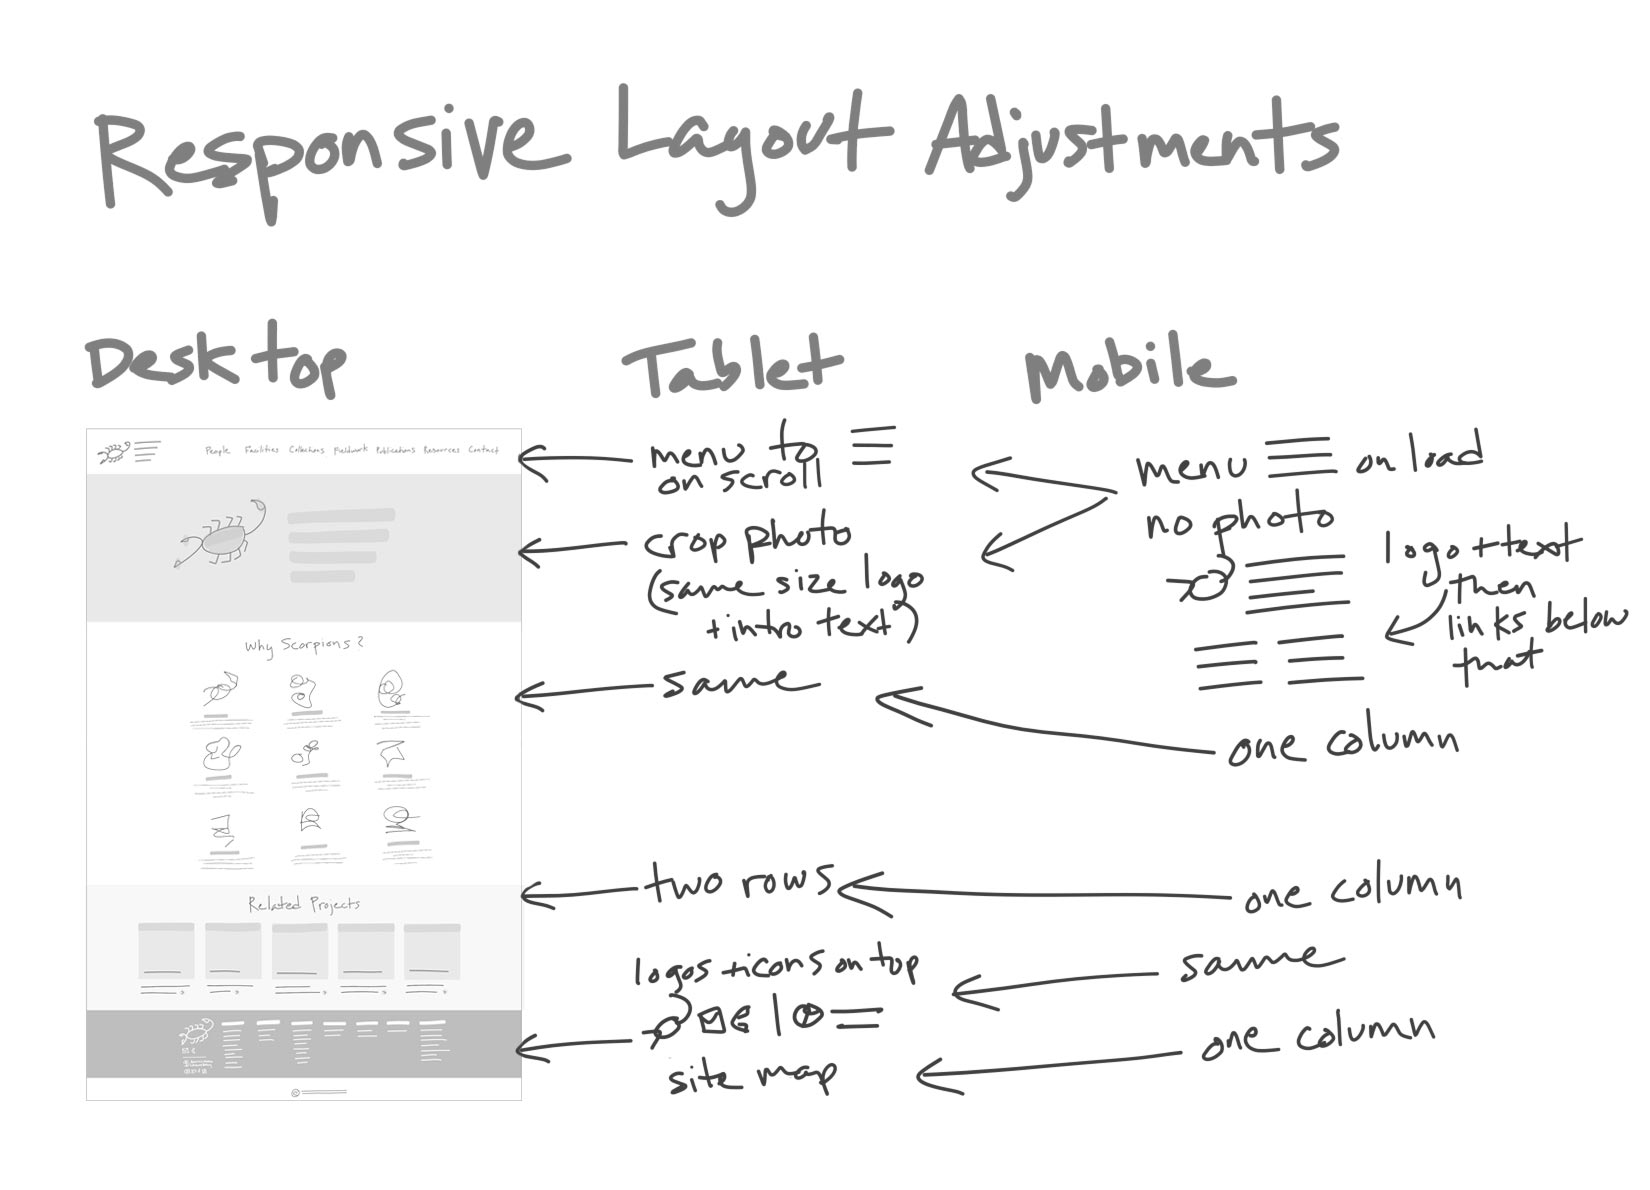 Responsive Layout Adjustments
Desktop
Tablet
Mobile
People Facilities Collections Fieldwork Publications Resources Contact
Why Scorpions?
Related Projects
©
menu to
on scroll
crop photo
(same size logo
+ intro text)
same
two rows
logos + icons on top
site map
menu on load
no photo
logo + text
then
links below
that
one column
one column
same
one column